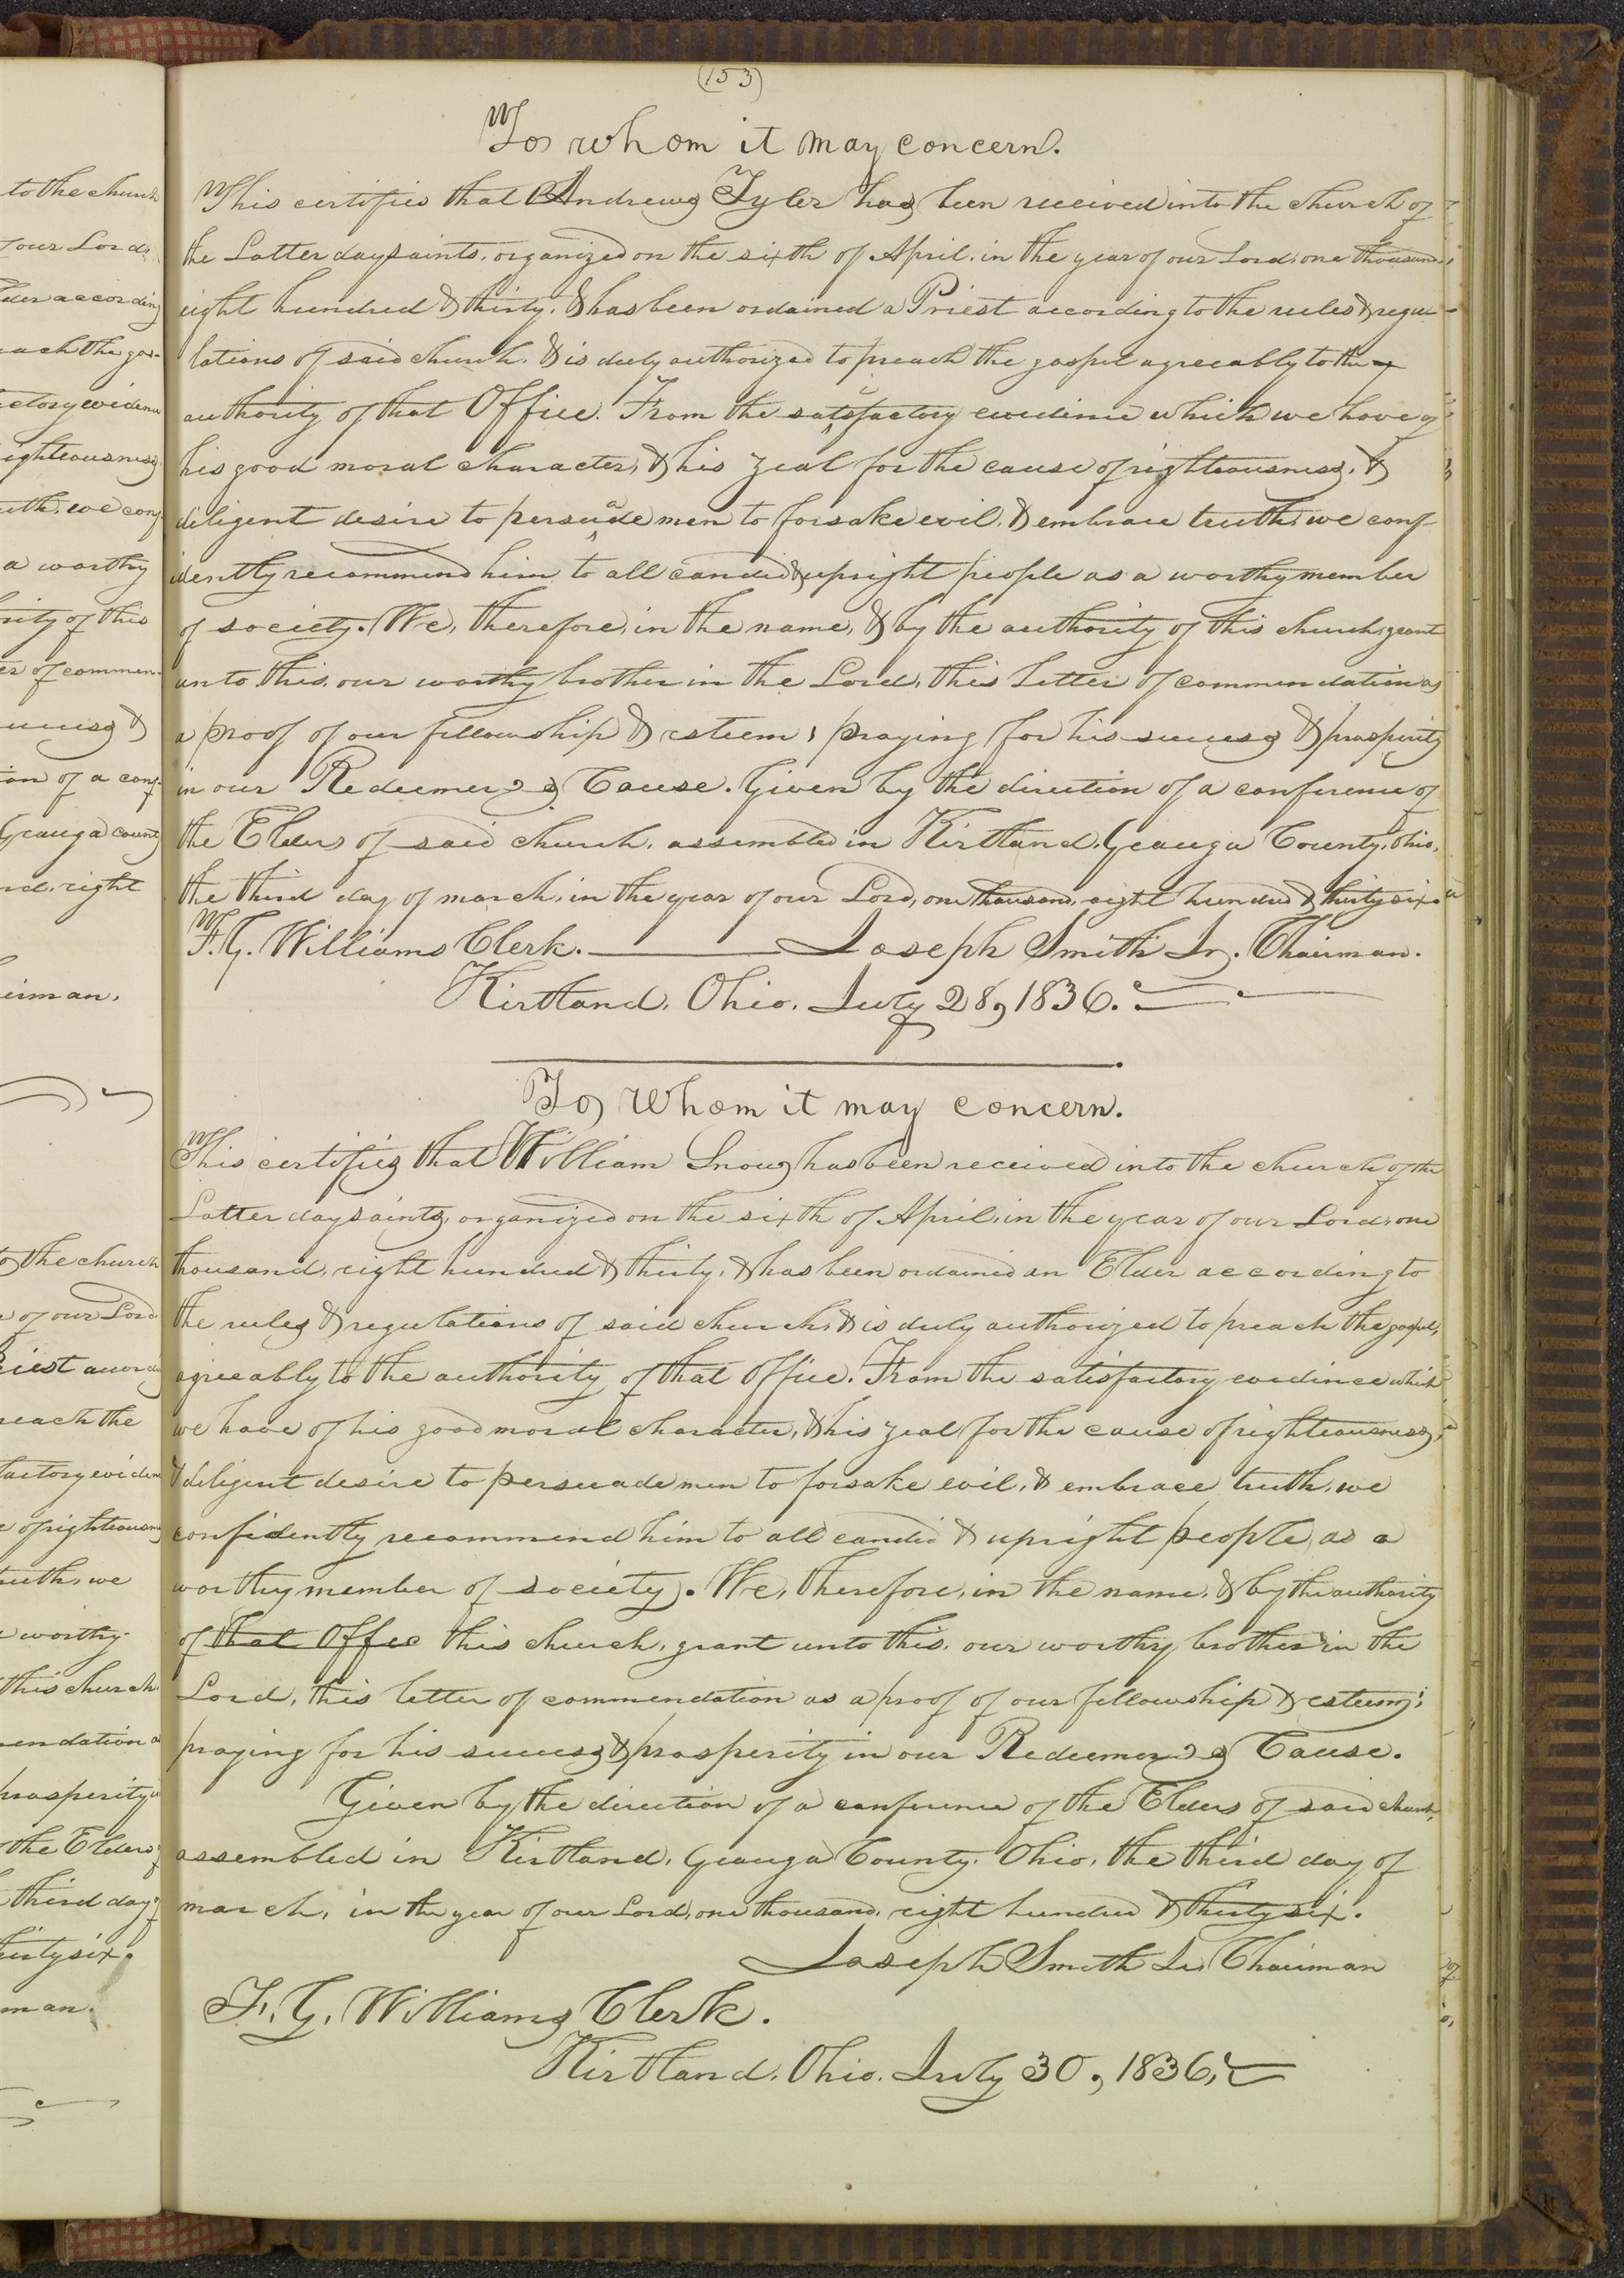 (153)
To whom it may concern.
This certifies that Andrew Tyler has been received into the church of
the Latter day saints, organized on the sixth of April, in the year of our Lord, one thousand,
eight hundred & thirty, & has been ordained a Priest according to the rules & regu-
lations of said church, & is duly authorized to preach the gospel agreeably to the
authority of that Office. From the satisfactory evidence which we have of
his good moral character, & his zeal for the cause of righteousness, &
diligent desire to persuade men to forsake evil, & embrace truth, we conf
idently recommend him to all candid & upright people as a worthy member
of society. We, therefore, in the name, & by the authority of this church, grant
unto this, our worthy brother in the Lord, this letter of commendation as
a proof of our fellowship & esteem; praying for his success & prosperity
in our Redeemer's Cause. Given by the direction of a conference of
the Elders of said church, assembled in Kirtland, Geauga County, Ohio,
the third day of march, in the year of our Lord, one thousand, eight hundred & thirty six.
F. G. Williams Clerk. Joseph Smith Jr. Chairman.
Kirtland, Ohio, July 28, 1836.
To whom it may concern.
This certifies that William Snow has been received into the church of the
Latter day saints, organized on the sixth of April, in the year of our Lord, one
thousand, eight hundred & thirty, & has been ordained an Elder according to
the rules & regulations of said church, & is duly authorized to preach the gospel,
agreeably to the authority of that office. From the satisfactory evidence which
we have of his good moral character, & his zeal for the cause of righteousness,
& diligent desire to persuade men to forsake evil, & embrace truth, we
confidently recommend him to all candid & upright people, as a
worthy member of society. We, therefore, in the name, & by the authority
of that Offec this church, grant unto this, our worthy brother in the
Lord, this letter of commendation as a proof of our fellowship & esteem;
praying for his success & prosperity in our Redeemer's Cause.
Given by the direction of a conference of the Elders of said church,
assembled in Kirtland, Geauga County, Ohio, the third day of
march, in the year of our Lord, one thousand, eight hundred & thirty six.
Joseph Smith Jr. Chairman
F. G. Williams Clerk.
Kirtland, Ohio, July 30, 1836.